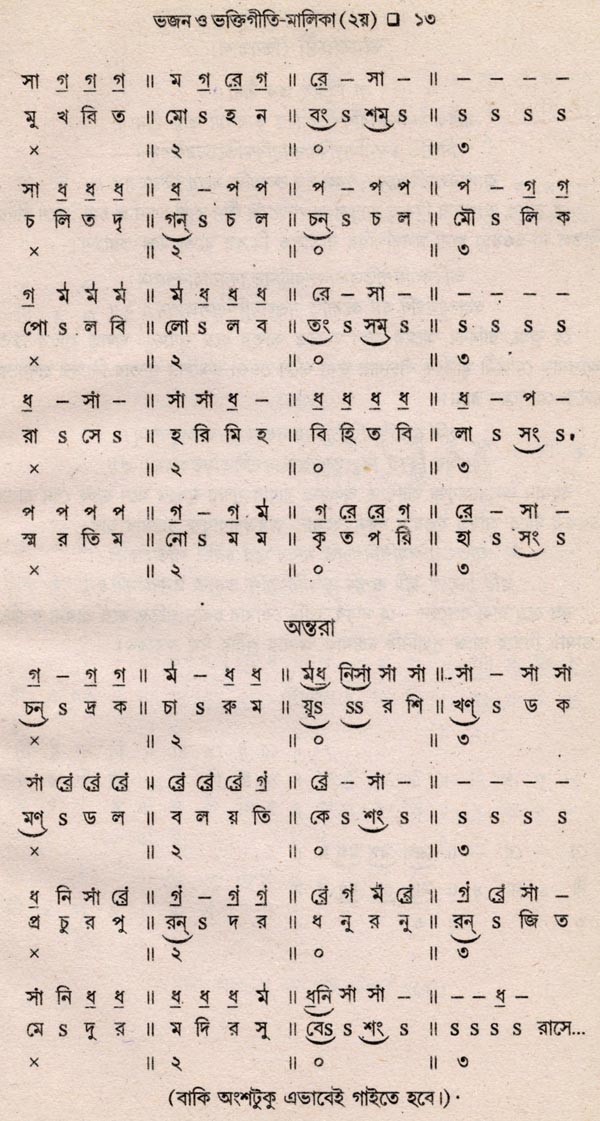 ভজন ও ভক্তিগীতি-মালিকা (২য়) ❑ ১৩
সা গ॒ গ॒ গ॒ ॥ ম গ॒ রে॒ গ॒ ॥ রে॒ – সা – ॥ – – – –
মু খ রি ত ॥ মো ऽ হ ন ॥ বং ऽ শম্ ऽ ॥ ऽ ऽ ऽ ऽ
× ॥ ২ ॥ ০ ॥ ৩
সা ধ॒ ধ॒ ধ॒ ॥ ধ॒ – প প ॥ প – প প ॥ প – গ॒ গ॒
চ লি ত দৃ ॥ গন্ ऽ চ ল ॥ চন্ ऽ চ ল ॥ মৌ ऽ লি ক
× ॥ ২ ॥ ০ ॥ ৩
গ॒ ম॑ ম॑ ম॑ ॥ ম॑ ধ॒ ধ॒ ধ॒ ॥ রে॒ – সা – ॥ – – – –
পো ऽ ল বি ॥ লো ऽ ল ব ॥ তং ऽ সম্ ऽ ॥ ऽ ऽ ऽ ऽ
× ॥ ২ ॥ ০ ॥ ৩
ধ॒ – সা॑ – ॥ সা॑ সা॑ ধ॒ – ॥ ধ॒ ধ॒ ধ॒ ধ॒ ॥ ধ॒ – প –
রা ऽ সে ऽ ॥ হ রি মি হ ॥ বি হি ত বি ॥ লা ऽ সং ऽ,
× ॥ ২ ॥ ০ ॥ ৩
প প প প ॥ গ॒ – গ॒ ম॑ ॥ গ॒ রে॒ রে॒ গ॒ ॥ রে॒ – সা –
স্ম র তি ম ॥ নো ऽ ম ম ॥ কৃ ত প রি ॥ হা ऽ সং ऽ
× ॥ ২ ॥ ০ ॥ ৩
অন্তরা
গ॒ – গ॒ গ॒ ॥ ম॑ – ধ॒ ধ॒ ॥ ম॑ধ॒ নিসা॑ সা॑ সা॑ ॥ সা॑ – সা॑ সা॑
চন্ ऽ দ্র ক ॥ চা ऽ রু ম ॥ য়ূऽ ऽऽ র শি ॥ খণ্ ऽ ড ক
× ॥ ২ ॥ ০ ॥ ৩
সা॑ রে॒॑ রে॒॑ রে॒॑ ॥ রে॒॑ রে॒॑ রে॒॑ গ॒॑ ॥ রে॒॑ – সা॑ – ॥ – – – –
মণ্ ऽ ড ল ॥ ব ল য় তি ॥ কে ऽ শং ऽ ॥ ऽ ऽ ऽ ऽ
× ॥ ২ ॥ ০ ॥ ৩
ধ॒ নি সা॑ রে॒॑ ॥ গ॒॑ – গ॒॑ গ॒॑ ॥ রে॒॑ গ॒॑ ম॑ রে॒॑ ॥ গ॒॑ রে॒॑ সা॑ –
প্র চু র পু ॥ রন্ ऽ দ র ॥ ধ নু র নু ॥ রন্ ऽ জি ত
× ॥ ২ ॥ ০ ॥ ৩
সা॑ নি ধ॒ ধ॒ ॥ ধ॒ ধ॒ ধ॒ ম॑ ॥ ধ॒নি সা॑ সা॑ – ॥ – – ধ॒ –
মে ऽ দু র ॥ ম দি র সু ॥ বেऽ ऽ শং ऽ ॥ ऽ ऽ ऽ ऽ রাসে...
× ॥ ২ ॥ ০ ॥ ৩
(বাকি অংশটুকু এভাবেই গাইতে হবে।)